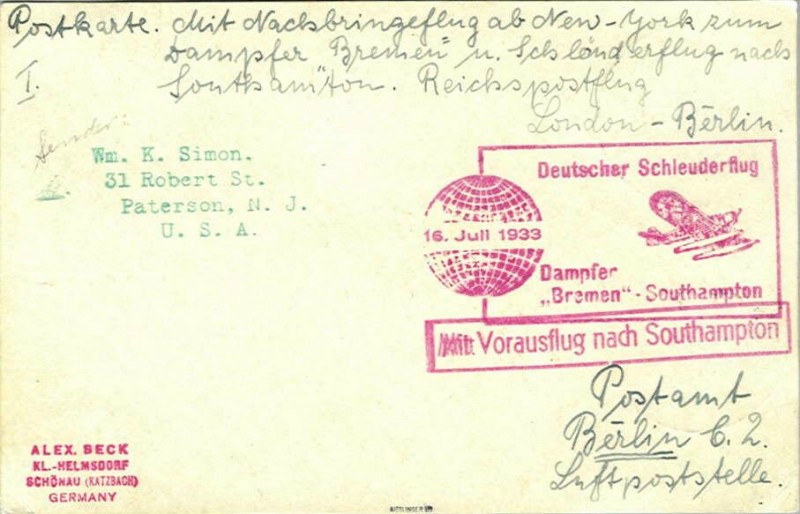 Postkarte. Mit Nachbringeflug ab New-York zum
Dampfer "Bremen" u. Schleuderflug nach
I. Southamton. Reichspostflug
London - Berlin.
Sender:
Wm. K. Simon.
31 Robert St.
Paterson, N. J.
U. S. A.
Deutscher Schleuderflug
16. Juli 1933
Dampfer
„Bremen“ - Southampton
Mit Vorausflug nach Southampton
Postamt
Berlin C. 2.
Luftpoststelle.
ALEX. BECK
KL.-HELMSDORF
SCHÖNAU (KATZBACH)
GERMANY